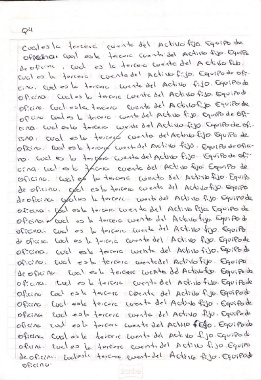 Q4
Cual es la tercera cuenta del Activo fijo. Equipo de
oficina. Cual es la tercera cuenta del Activo fijo. Equipo
de oficina. Cual es la tercera cuenta del Activo fijo.
Cual es la tercera cuenta del Activo fijo. Equipo de ofi-
cina. Cual es la tercera cuenta del Activo fijo. Equipo de
oficina. Cual es la tercera cuenta del Activo fijo. Equipo de
oficina. Cual es la tercera cuenta del Activo fijo. Equipo de ofi-
cina. Cual es la tercera cuenta del Activo fijo. Equipo de ofi-
cina. Cual es la tercera cuenta del Activo fijo. Equipo de
oficina. Cual es la tercera cuenta del Activo fijo. Equipo de ofici-
na. Cual es la tercera cuenta del Activo fijo. Equipo de ofi-
cina. Cual es la tercera cuenta del Activo fijo. Equipo de
oficina. Cual es la tercera cuenta del Activo fijo. Equipo de
oficina. Cual es la tercera cuenta del Activo fijo. Equipo
de oficina. Cual es la tercera cuenta del Activo fijo. Equipo de
oficina. Cual es la tercera cuenta del Activo fijo. Equipo de
oficina. Cual es la tercera cuenta del Activo fijo. Equipo de
oficina. Cual es la tercera cuenta del Activo fijo. Equipo
de oficina. Cual es la tercera cuenta del Activo fijo. Equipo
de oficina. Cual es la tercera cuenta del Activo fijo. Equipo de
oficina. Cual es la tercera cuenta del Activo fijo. Equipo de
oficina. Cual es la tercera cuenta del Activo fijo. Equipo de
oficina. Cual es la tercera cuenta del Activo fijo. Equipo de
oficina. Cual es la tercera cuenta del Activo fijo. Equipo
de oficina. Cual es la tercera cuenta del Activo fijo. Equipo de
oficina.